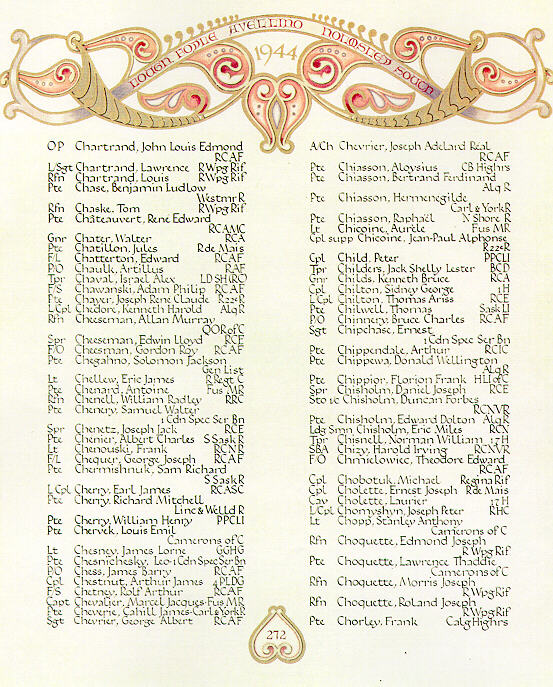 LOUGH FOYLE AVELLINO NOLMSLEY SOUTH
1944
OP Chartrand, John Louis Edmond
RCAF
L/Sgt Chartrand, Lawrence R Wpg Rif
Rfn Chartrand, Louis R Wpg Rif
Pte Chase, Benjamin Ludlow
Westmr R
Rfn Chaske, Tom R Wpg Rif
Pte Châteauvert, René Edward
RCAMC
Gnr Chater, Walter RCA
Pte Châtillon, Jules R de Mais
F/L Chatterton, Edward RCAF
P/O Chaulk, Artillus RAF
Tpr Chaval, Israel Alex LD SH(RC)
F/S Chawanski, Adam Philip RCAF
Pte Chayer, Joseph René Claude R22eR
L/Cpl Chedore, Kenneth Harold Alq R
Rfn Cheeseman, Allan Murray
QOR of C
Spr Cheeseman, Edwin Lloyd RCE
F/O Cheesman, Gordon Roy RCAF
Pte Chegahno, Solomon Jackson
Gen List
Lt Chellew, Eric James R Regt C
Pte Chenard, Antoine Fus MR
Rfn Chenell, William Radley RRC
Pte Chenery, Samuel Walter
1 Cdn Spec Ser Bn
Spr Chenetz, Joseph Jack RCE
Pte Chenier, Albert Charles S Sask R
Lt Chenouski, Frank RCNR
F/L Chequer, George Joseph RCAF
Pte Chermishnuk, Sam Richard
S Sask R
L/Cpl Cherry, Earl James RCASC
Pte Cherry, Richard Mitchell
Linc & Welld R
Pte Cherry, William Henry PPCLI
Pte Chervek, Louis Emil
Camerons of C
Lt Chesney, James Lorne GGHG
Pte Chesnichesky, Leo 1 Cdn Spec Ser Bn
P/O Chess, James Barry RCAF
Cpl Chestnut, Arthur James 4 PLDG
F/S Chetney, Rolf Arthur RCAF
Capt Chevalier, Marcel Jacques Fus MR
Pte Cheverie, Cahill James Carl & York R
Sgt Chevrier, George Albert RCAF
A/Ch Chevrier, Joseph Adelard Real
RCAF
Pte Chiasson, Aloysius CB Highrs
Pte Chiasson, Bertrand Ferdinand
Alq R
Pte Chiasson, Hermenegilde
Carl & York R
Pte Chiasson, Raphaël N Shore R
Lt Chicoine, Aurèle Fus MR
Cpl supp Chicoine, Jean-Paul Alphonse
R22eR
Cpl Child, Peter PPCLI
Tpr Childers, Jack Shelly Lester BCD
Gnr Childs, Kenneth Bruce RCA
Cpl Chilton, Sidney George 1 H
L/Cpl Chilton, Thomas Ariss RCE
Pte Chilwell, Thomas Sask LI
P/O Chinnery, Bruce Charles RCAF
Sgt Chipchase, Ernest
1 Cdn Spec Ser Bn
Pte Chippendale, Arthur RCIC
Pte Chippewa, Donald Wellington
Alq R
Pte Chippior, Florion Frank HLI of C
Spr Chisholm, Daniel Joseph RCE
Sto 1c Chisholm, Duncan Forbes
RCNVR
Pte Chisholm, Edward Dolton Alq R
Ldg Smn Chisholm, Eric Miles RCN
Tpr Chisnell, Norman William 17 H
SBA Chizy, Harold Irving RCNVR
F/O Chmielowiec, Theodore Edward
RCAF
Cpl Chobotuk, Michael Regina Rif
Cpl Cholette, Ernest Joseph R de Mais
Cav Cholette, Laurier 17 H
L/Cpl Chomyshyn, Joseph Peter RHC
Lt Chopp, Stanley Anthony
Camerons of C
Rfn Choquette, Edmond Joseph
R Wpg Rif
Pte Choquette, Lawrence Thaddie
Camerons of C
Rfn Choquette, Morris Joseph
R Wpg Rif
Rfn Choquette, Roland Joseph
R Wpg Rif
Pte Chorley, Frank Calg Highrs
272